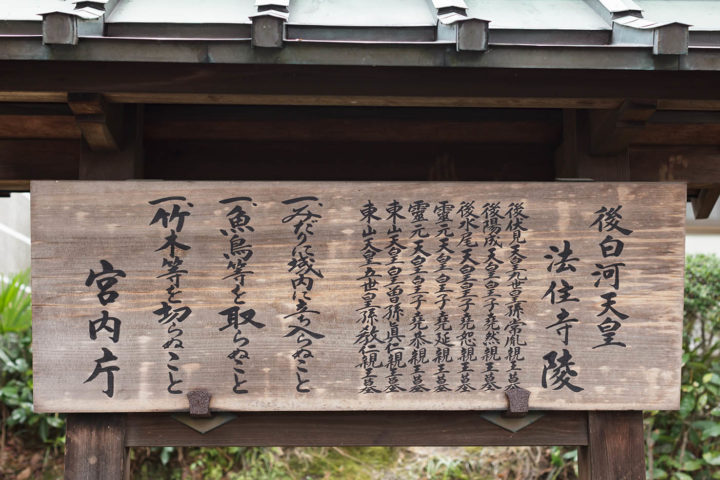 後白河天皇
法住寺陵
後伏見天皇九世皇孫常胤親王墓
後陽成天皇皇子堯然親王墓
後水尾天皇皇子堯恕親王墓
靈元天皇皇子堯延親王墓
靈元天皇皇子堯恭親王墓
東山天皇皇曽孫眞仁親王墓
東山天皇五世皇孫教仁親王墓
一、みだりに域内に立入らぬこと
一、魚鳥等を取らぬこと
一、竹木等を切らぬこと
宮内庁